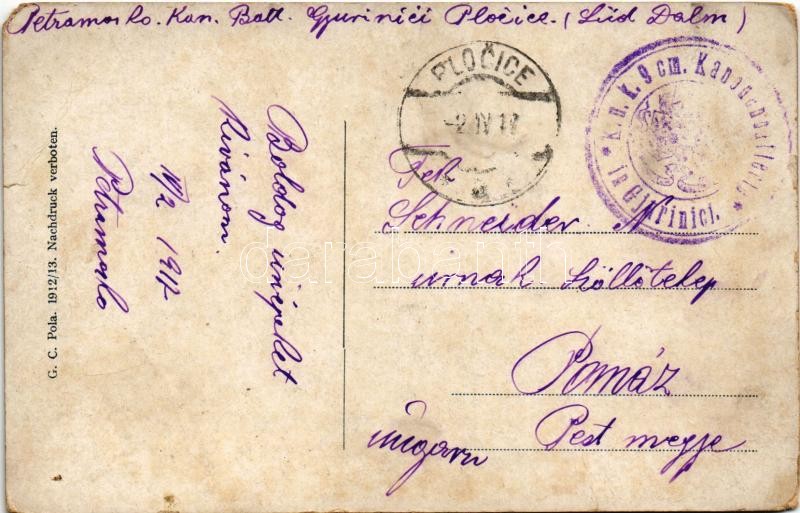 Petramosko. Kan. Batt. Gjurinići Pločice. (Süd Dalm)
PLOČICE
-2 IV 17
* K. u. K. 9 cm. Kanonenbatterie *
in Gjurinici.
Boldog ünnepeket
Kivánom.
IV/2 1917
Petramosko
Tek
Schneider N
urnak Szőllőtelep
Pomáz
Pest megye
Ungarn
G. C. Pola. 1912/13. Nachdruck verboten.
darabanth